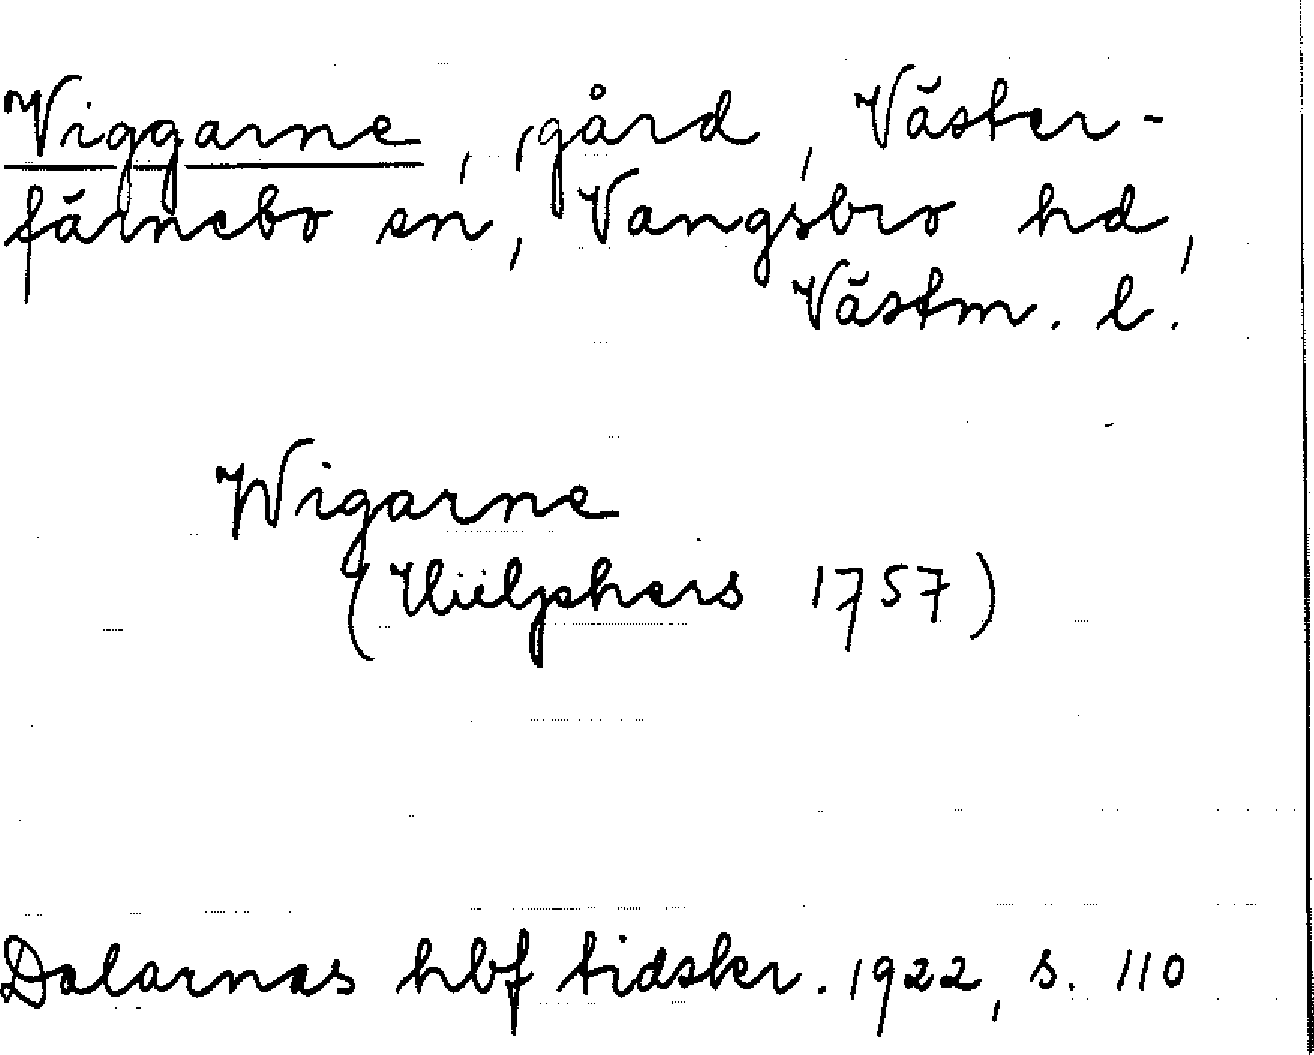 Viggarne, gård, Väster-
färnebo sn, Vangsbro hd,
Västm. l.
Wigarne
(Hülphers 1757)
Dalarnas hbf tidskr. 1922, s. 110